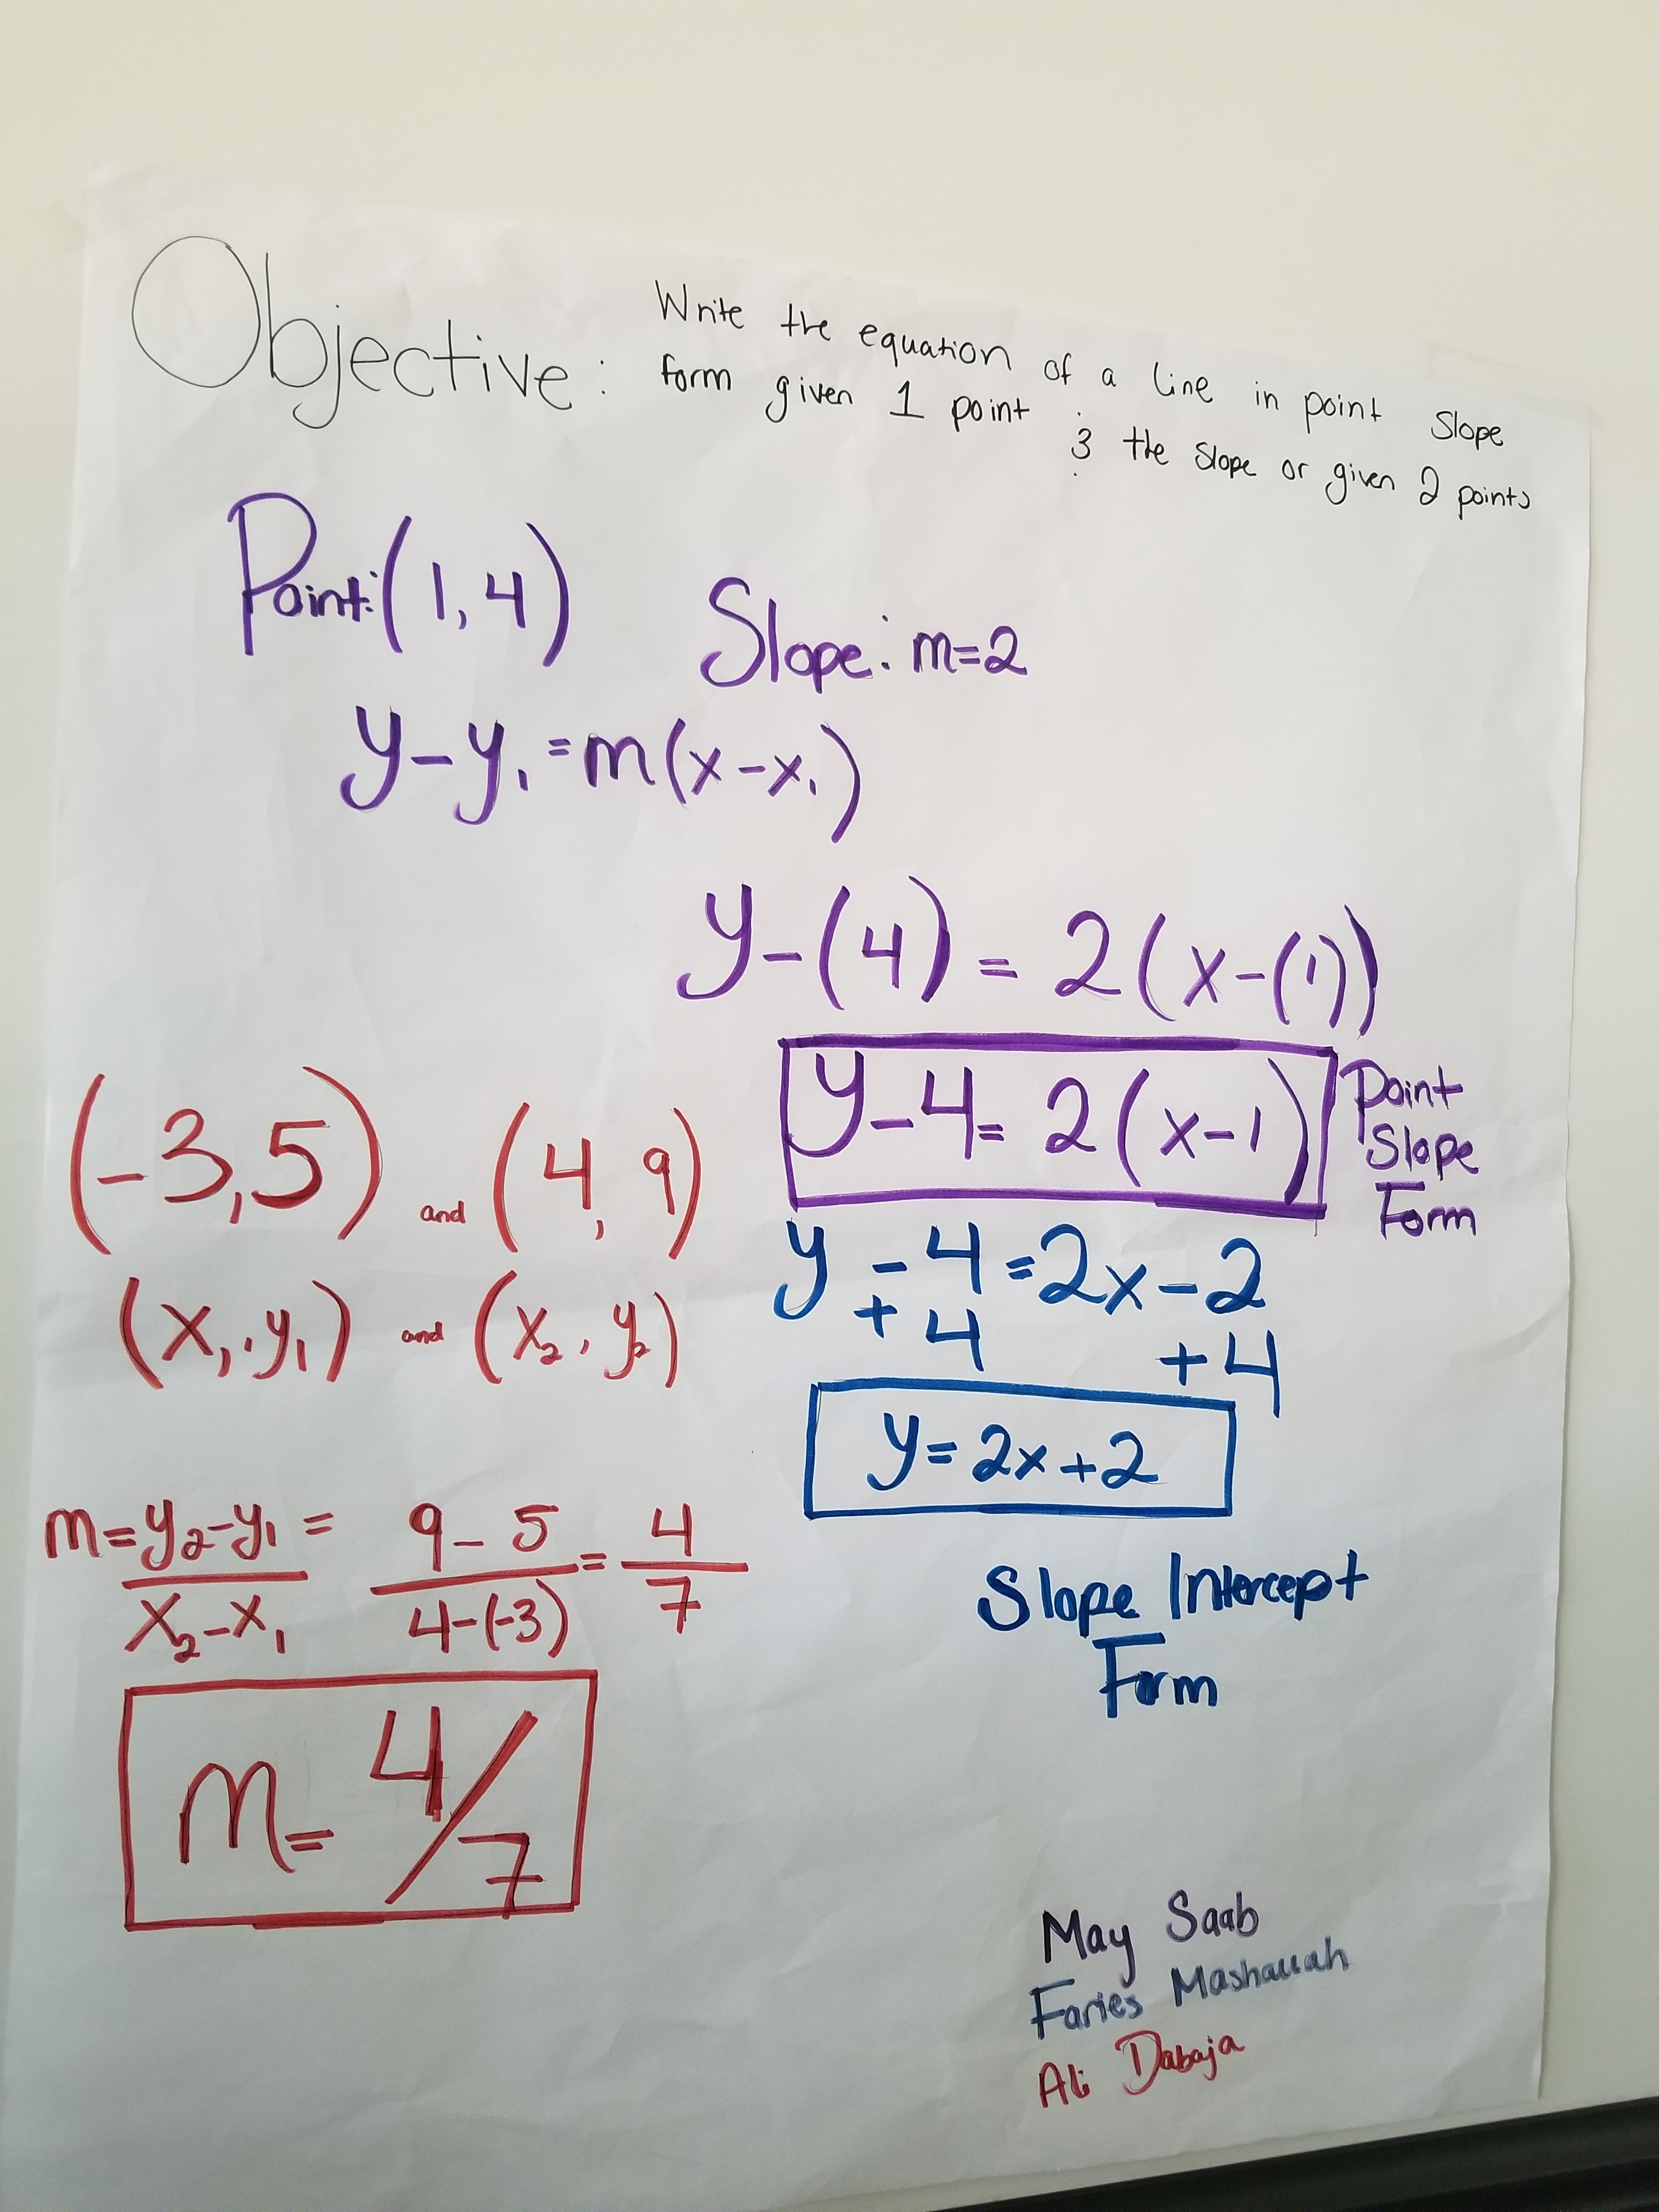 Objective: Write the equation of a line in point slope
form given 1 point & the slope or given 2 points
Point: (1, 4) Slope: m=2
y-y₁=m(x-x₁)
y-(4) = 2(x-(1))
y-4= 2(x-1)
Point
Slope
Form
y-4=2x-2
+4 +4
y=2x+2
Slope Intercept
Form
(-3,5) and (4,9)
(x₁,y₁) and (x₂,y₂)
m=y₂-y₁/x₂-x₁ = 9-5/4-(-3) = 4/7
m=4/7
May Saab
Faries Mashauah
Ali Dabaja